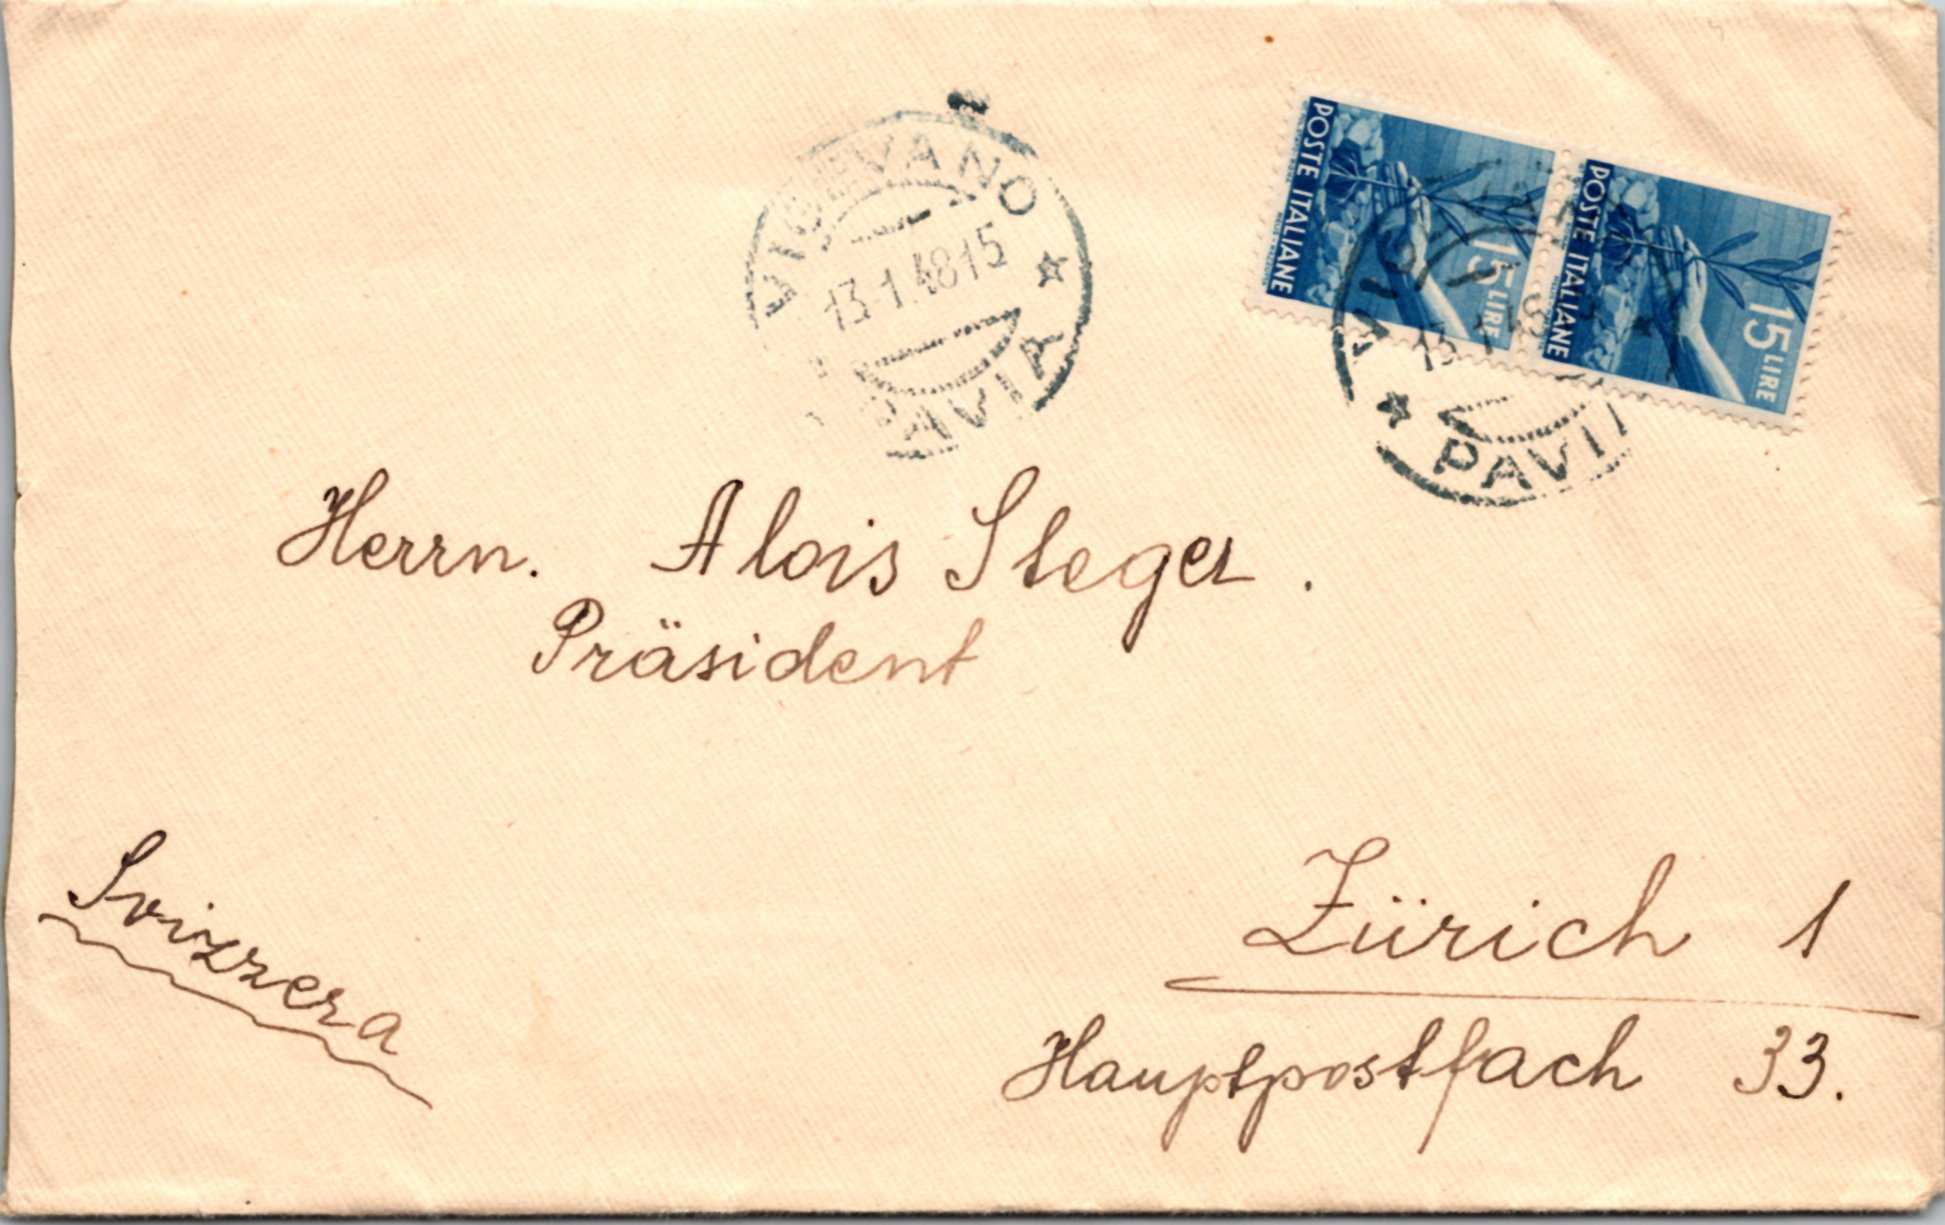 VIGEVANO
13.1.48 15
PAVIA
POSTE ITALIANE
15 LIRE
POSTE ITALIANE
15 LIRE
13.1.48
PAVI
Herrn. Alois Steger.
Präsident
Svizzera
Zürich 1
Hauptpostfach 33.